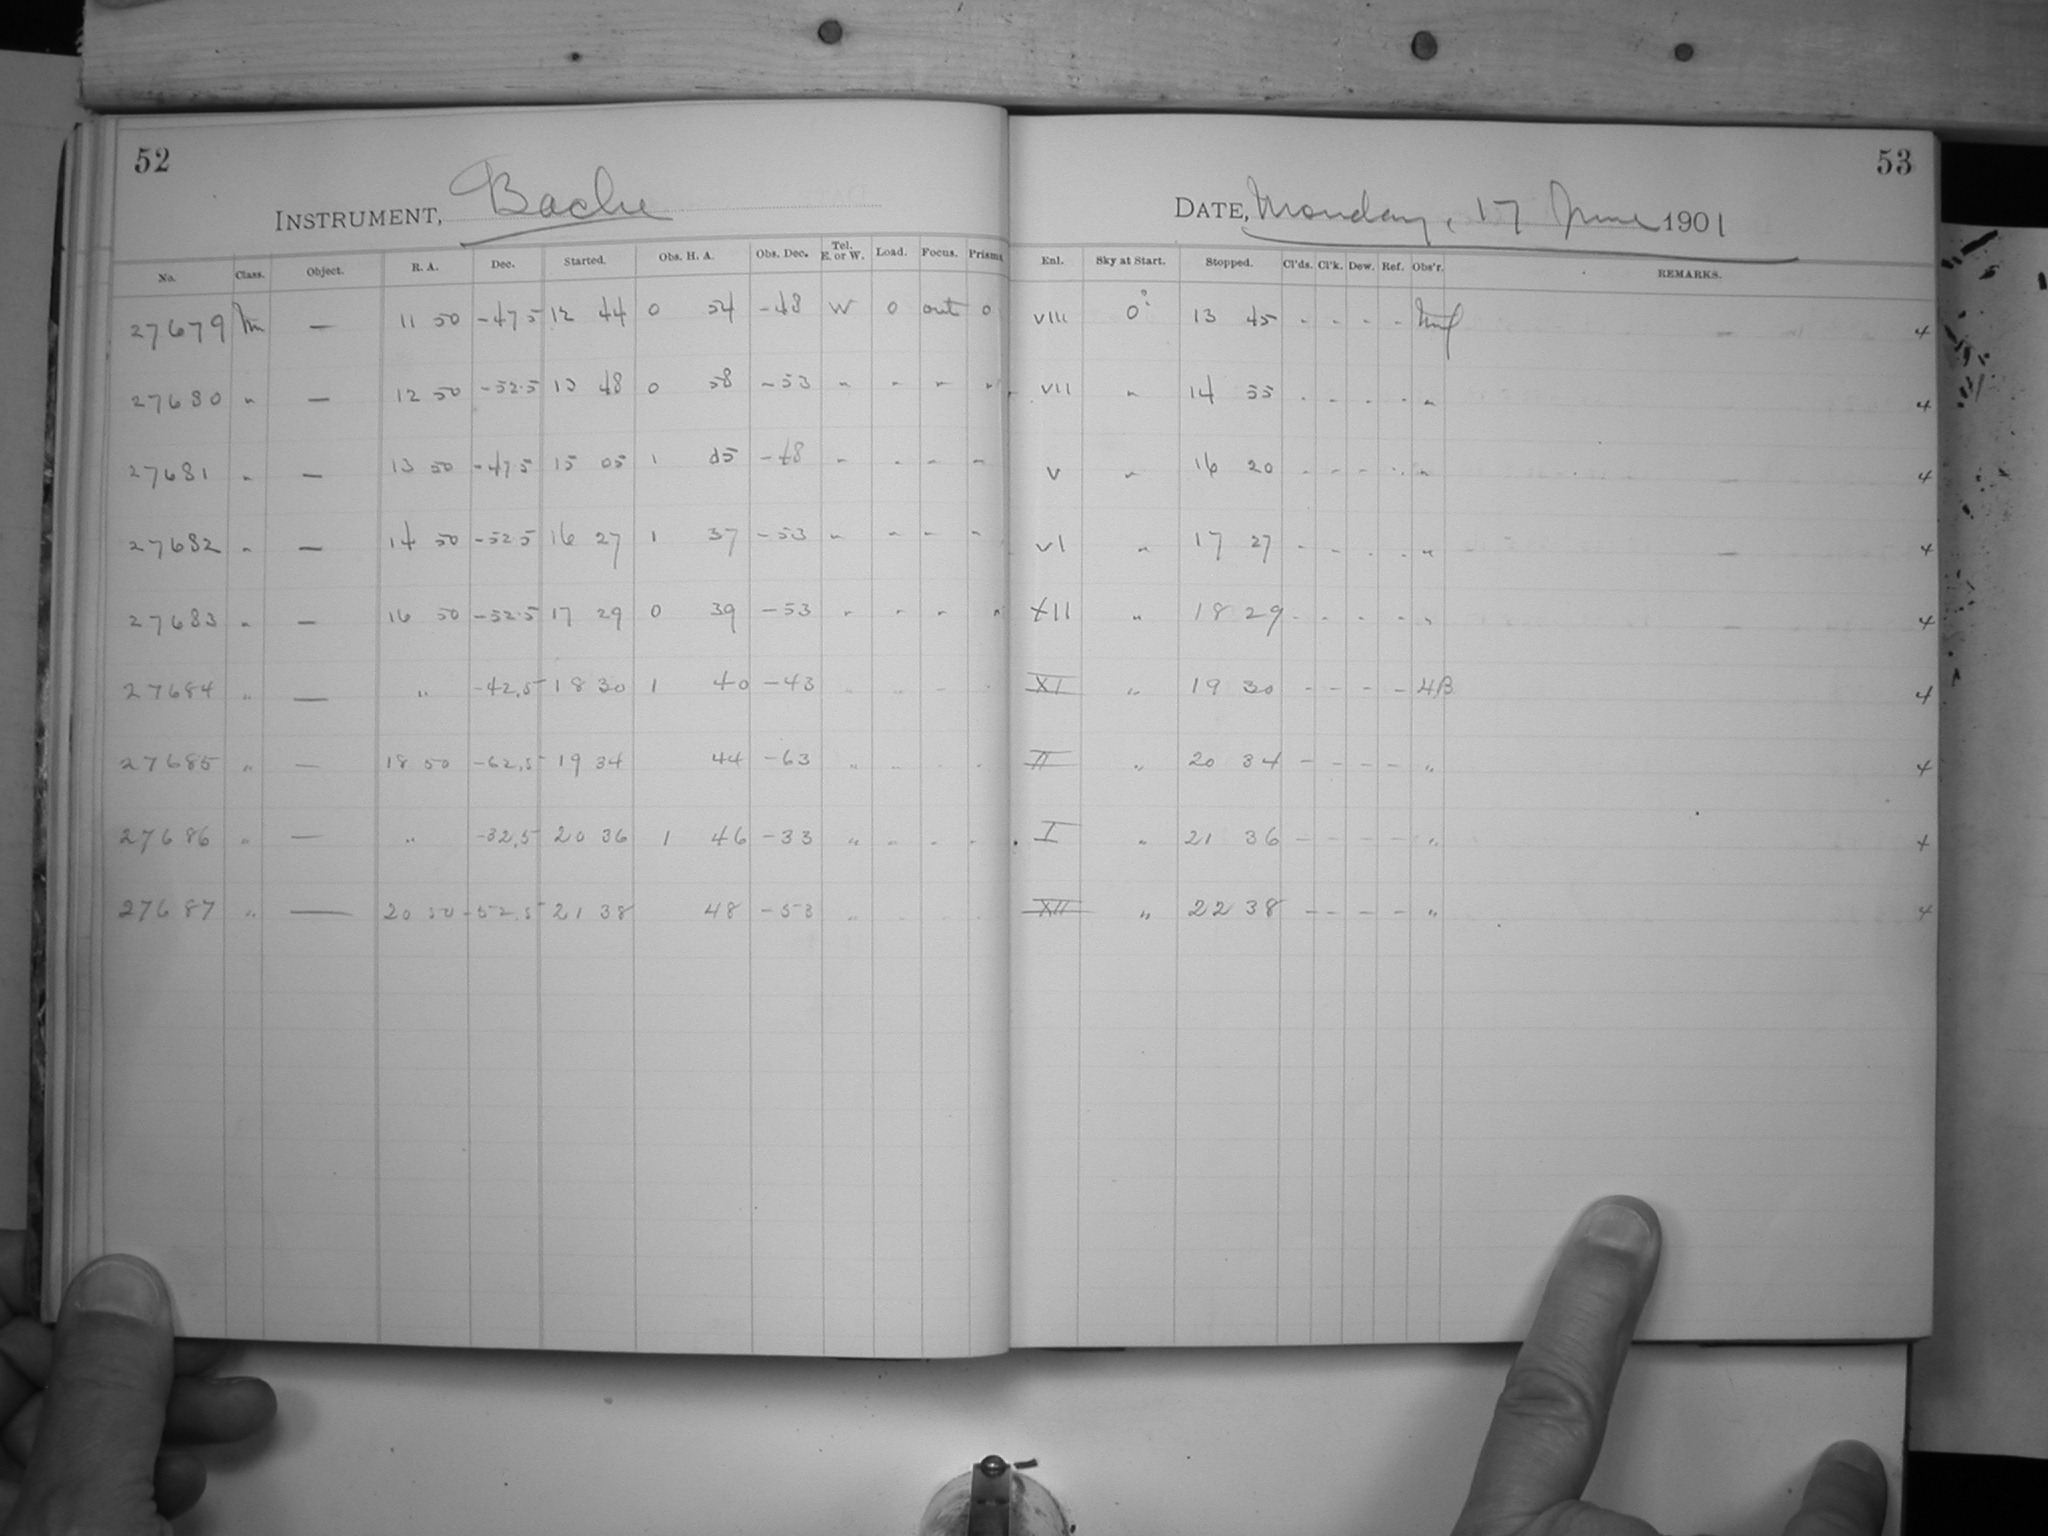 52
INSTRUMENT, Bache
No. Class. Object. R. A. Dec. Started. Obs. H. A. Obs. Dec. Tel. E. or W. Load. Focus. Prisms
27679 m — 11 50 -47 5 12 44 0 54 -48 W 0 out 0
27680 " — 12 50 -52.5 13 48 0 58 -53 " " " "
27681 " — 13 50 -47 5 15 05 1 15 -48 " " " "
27682 " — 14 50 -52.5 16 27 1 37 -53 " " " "
27683 " — 16 50 -52.5 17 29 0 39 -53 " " " "
27684 " — " -42.5 18 30 1 40 -43 " " " "
27685 " — 18 50 -62.5 19 34 44 -63 " " " "
27686 " — " -32.5 20 36 1 46 -33 " " " "
27687 " — 20 50 -52.5 21 38 48 -53 " " " "
53
DATE, Monday, 17 June 1901
Enl. Sky at Start. Stopped. Cl'ds. Cl'k. Dew. Ref. Obs'r. REMARKS.
VIII 0 13 45 - - - - 4
VII " 14 55 - - - - " 4
V " 16 20 - - - - " 4
VI " 17 27 - - - - " 4
XII " 18 29 - - - - " 4
XI " 19 30 - - - - 4
II " 20 34 - - - - " 4
I " 21 36 - - - - " 4
XII " 22 38 - - - - " 4